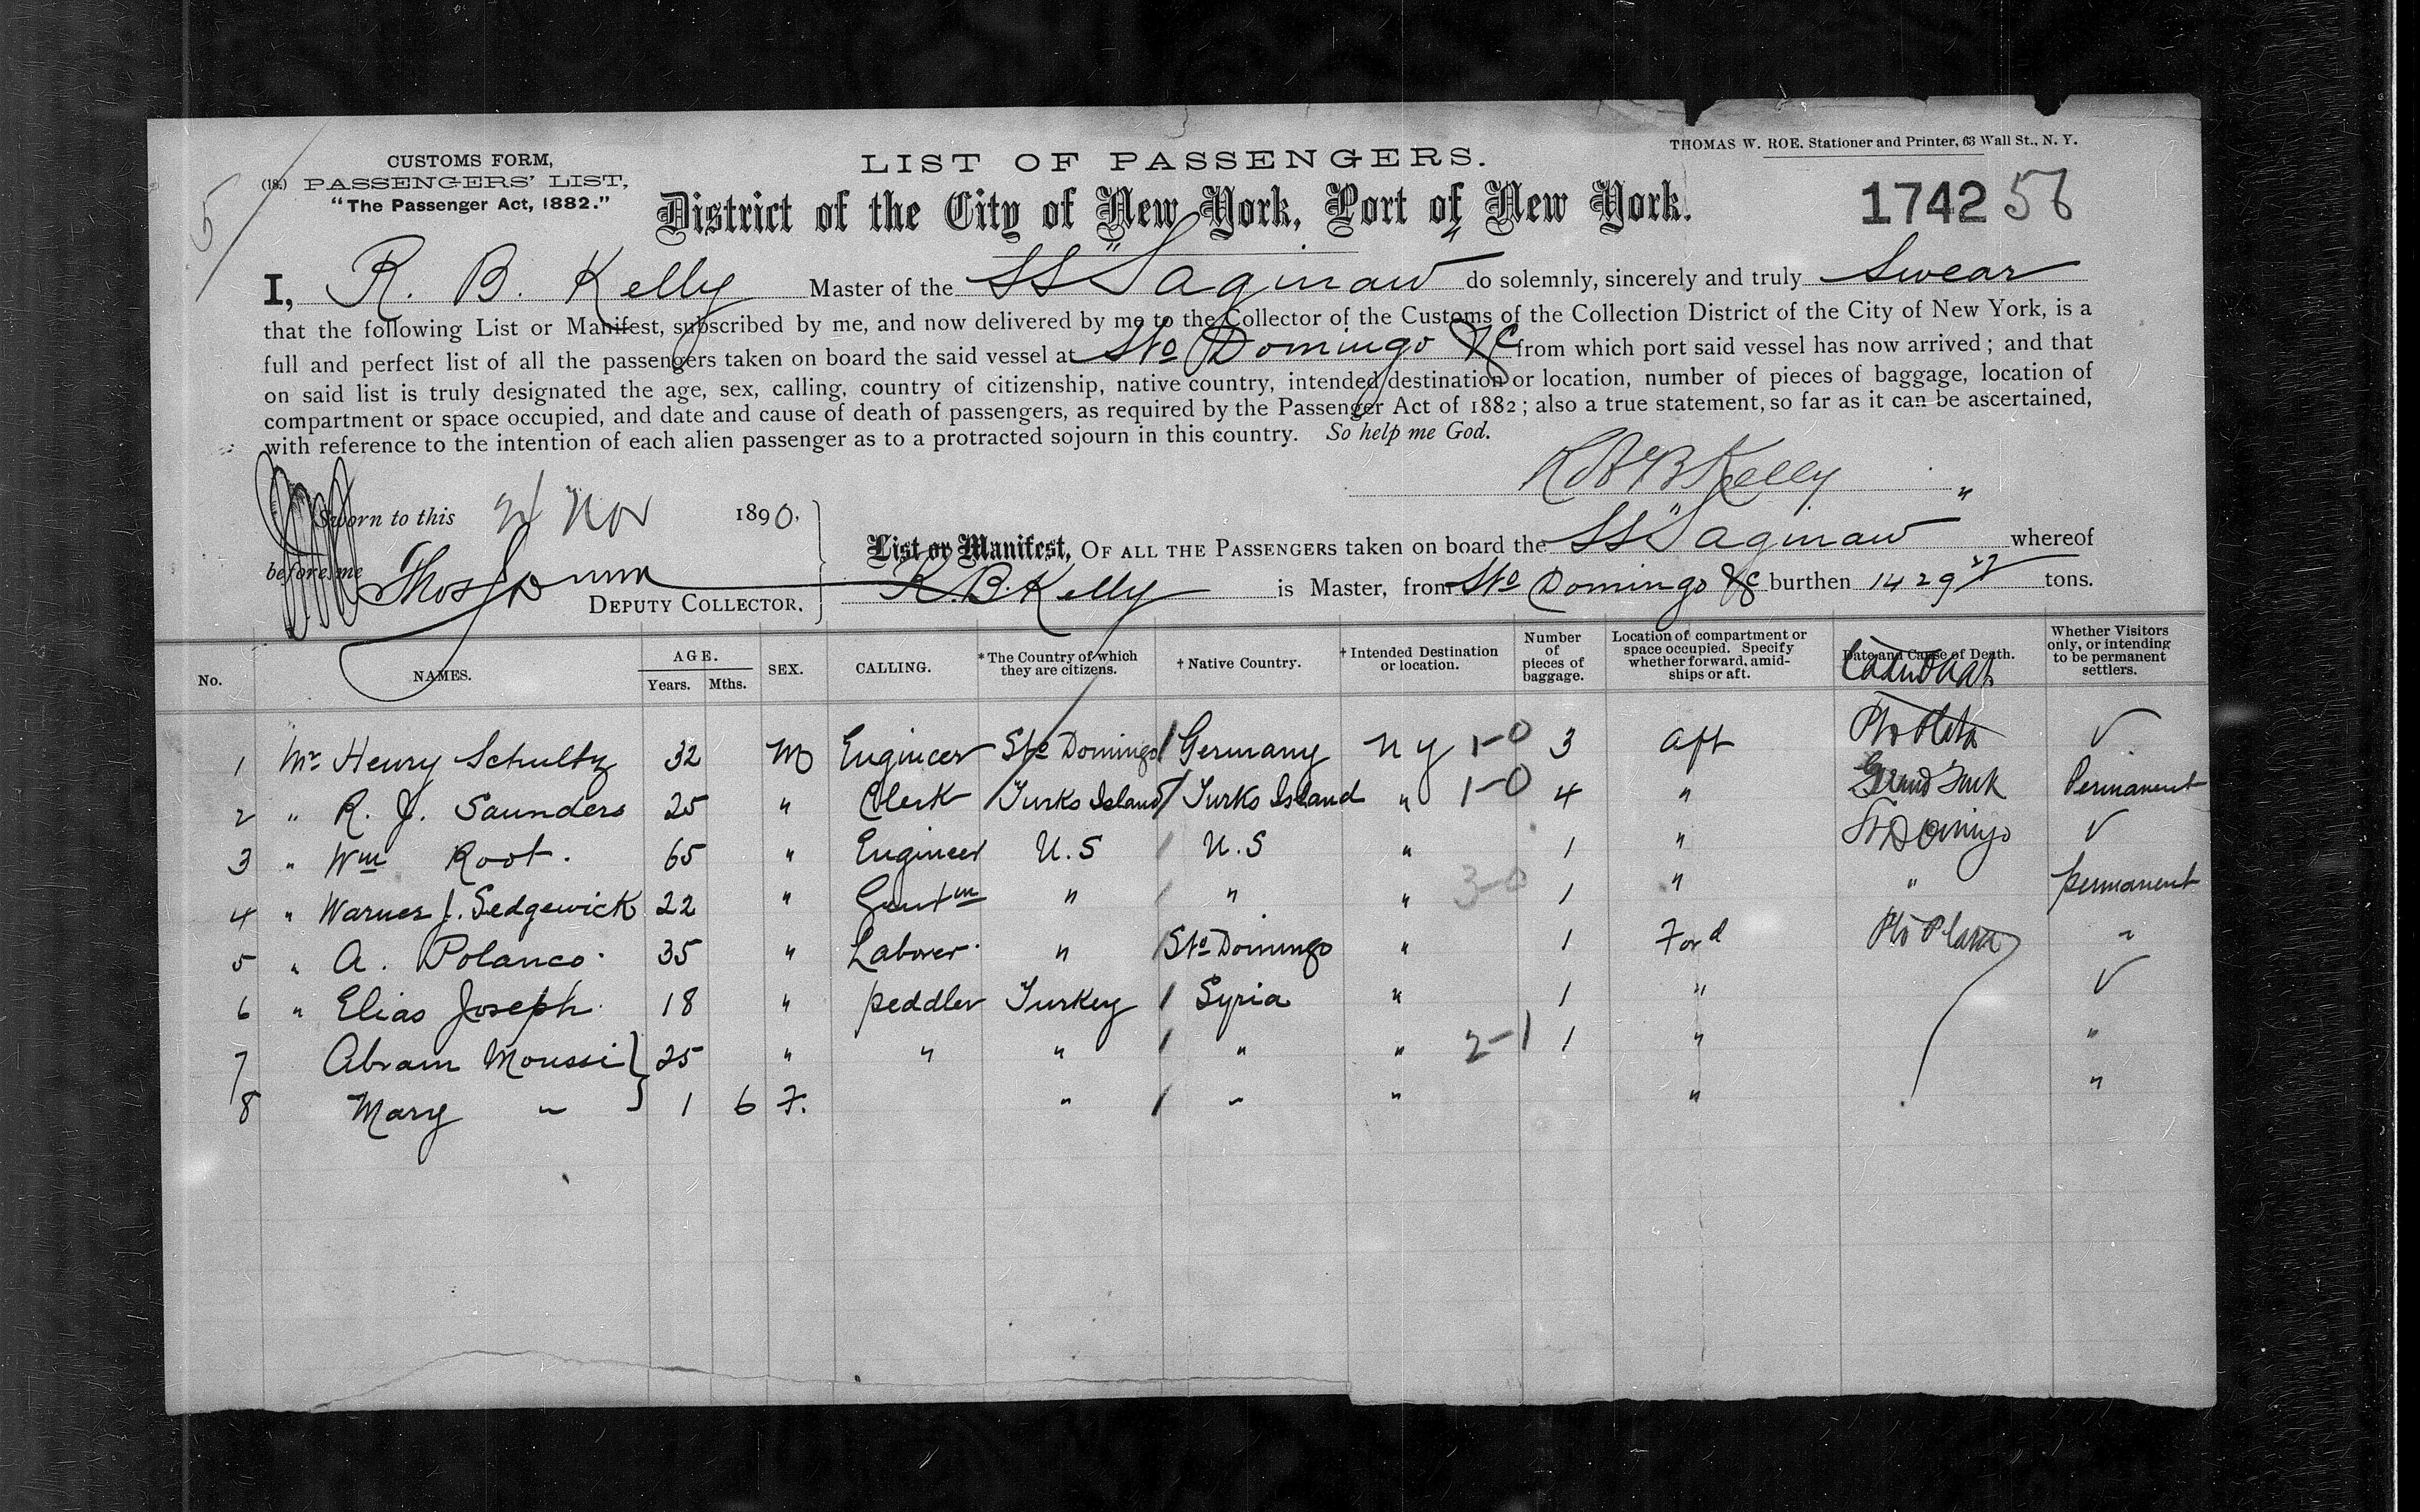 CUSTOMS FORM,
LIST OF PASSENGERS.
THOMAS W. ROE, Stationer and Printer, 63 Wall St., N. Y.
(18.) PASSENGERS' LIST,
"The Passenger Act, 1882."
District of the City of New York, Port of New York.
1742 56
5/
I, R. B. Kelly Master of the SS "Saginaw" do solemnly, sincerely and truly Swear
that the following List or Manifest, subscribed by me, and now delivered by me to the Collector of the Customs of the Collection District of the City of New York, is a
full and perfect list of all the passengers taken on board the said vessel at Sto Domingo &c from which port said vessel has now arrived; and that
on said list is truly designated the age, sex, calling, country of citizenship, native country, intended destination or location, number of pieces of baggage, location of
compartment or space occupied, and date and cause of death of passengers, as required by the Passenger Act of 1882; also a true statement, so far as it can be ascertained,
with reference to the intention of each alien passenger as to a protracted sojourn in this country. So help me God.
Kelly
Sworn to this Nov 1890,
before me Thos Dunn
DEPUTY COLLECTOR.
List or Manifest, OF ALL THE PASSENGERS taken on board the SS "Saginaw" whereof
R. B. Kelly is Master, from Sto Domingo &c burthen 1429 tons.
No. NAMES. AGE. Years. Mths. SEX. CALLING. *The Country of which they are citizens. †Native Country. †Intended Destination or location. Number of pieces of baggage. Location of compartment or space occupied. Specify whether forward, amidships or aft. Date and Cause of Death. Whether Visitors only, or intending to be permanent settlers.
1 Mr Henry Schultz 32 M Engineer Sto Domingo / Germany N Y 1-0 3 aft Pto Plata √
2 " R. J. Saunders 25 " Clerk / Turks Island / Turks Island " 1-0 4 " Grand Turk Permanent
3 " Wm Root. 65 " Engineer U.S / U.S " 1 " St Domingo √
4 " Warner J. Sedgewick 22 " Gentm " / " " 3-0 1 " " permanent
5 " A. Polanco. 35 " Laborer " / Sto Domingo " 1 Ford Pto Plata "
6 " Elias Joseph 18 " peddler Turkey / Syria " 1 " √
7 Abram Moussi } 25 " " " / " " 2-1 1 " "
8 Mary " } 1 6 F. " / " " " "